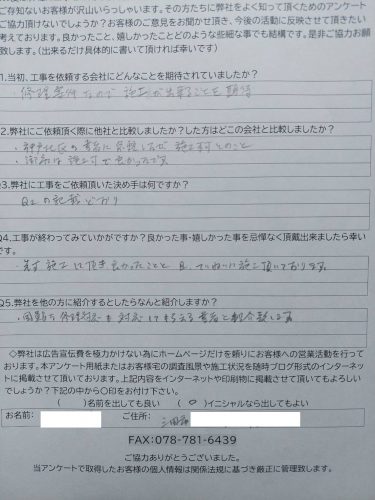 ご存知ないお客様が沢山いらっしゃいます。その方たちに弊社をよく知って頂くためのアンケート
ご協力頂けないでしょうか？お客様のご意見をお聞かせ頂き、今後の活動に反映させて頂きたい
考えております。良かったこと、嬉しかったことどのような些細な事でも結構です。是非ご協力お願
致します。(出来るだけ具体的に書いて頂ければ幸いです)
1.当初、工事を依頼する会社にどんなことを期待されていましたか？
修理案件なので施工が出来ることを期待
2.弊社にご依頼頂く際に他社と比較しましたか？した方はどこの会社と比較しましたか？
施工可とのこと
は施工可で良かったです
Q3.弊社に工事をご依頼頂いた決め手は何ですか？
Q2の記載どおり
Q4.工事が終わってみていかがですか？良かった事・嬉しかった事を忌憚なく頂戴出来ましたら幸い
です。
施工して頂き良かったこと
Q5.弊社を他の方に紹介するとしたらなんと紹介しますか？
修理対応も対応してもらえる業者と紹介致します
◇弊社は広告宣伝費を極力かけない為にホームページだけを頼りにお客様への営業活動を行って
おります。本アンケート用紙またはお客様宅の調査風景や施工状況を随時ブログ形式のインターネッ
トに掲載させて頂いております。上記内容をインターネットや印刷物に掲載させて頂いてもよろしい
でしょうか？下記の中から〇印をお付け下さい。
( )名前を出しても良い (○)イニシャルなら出してもよい
お名前: ご住所: 三田市
FAX:078-781-6439
ご協力ありがとうございました。
当アンケートで取得したお客様の個人情報は関係法規に基づき厳正に管理致します。